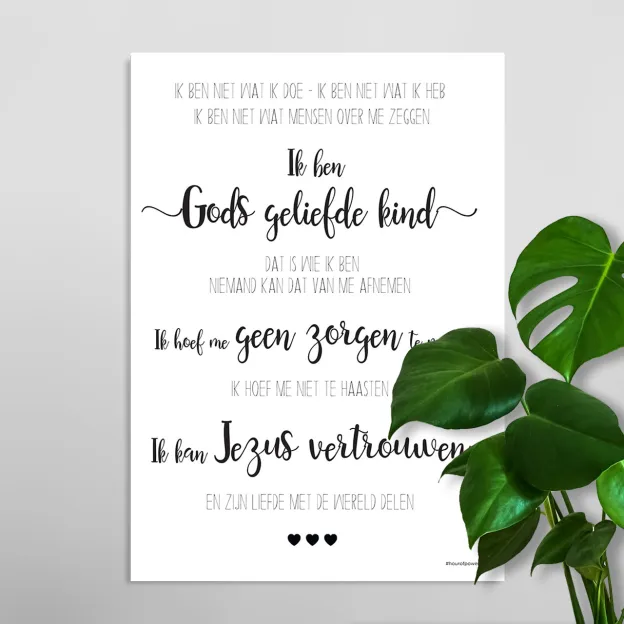 IK BEN NIET WAT IK DOE - IK BEN NIET WAT IK HEB
IK BEN NIET WAT MENSEN OVER ME ZEGGEN
Ik ben
Gods geliefde kind
DAT IS WIE IK BEN
NIEMAND KAN DAT VAN ME AFNEMEN
Ik hoef me geen zorgen te
IK HOEF ME NIET TE HAASTEN
Ik kan Jezus vertrouwen
EN ZIJN LIEFDE MET DE WERELD DELEN